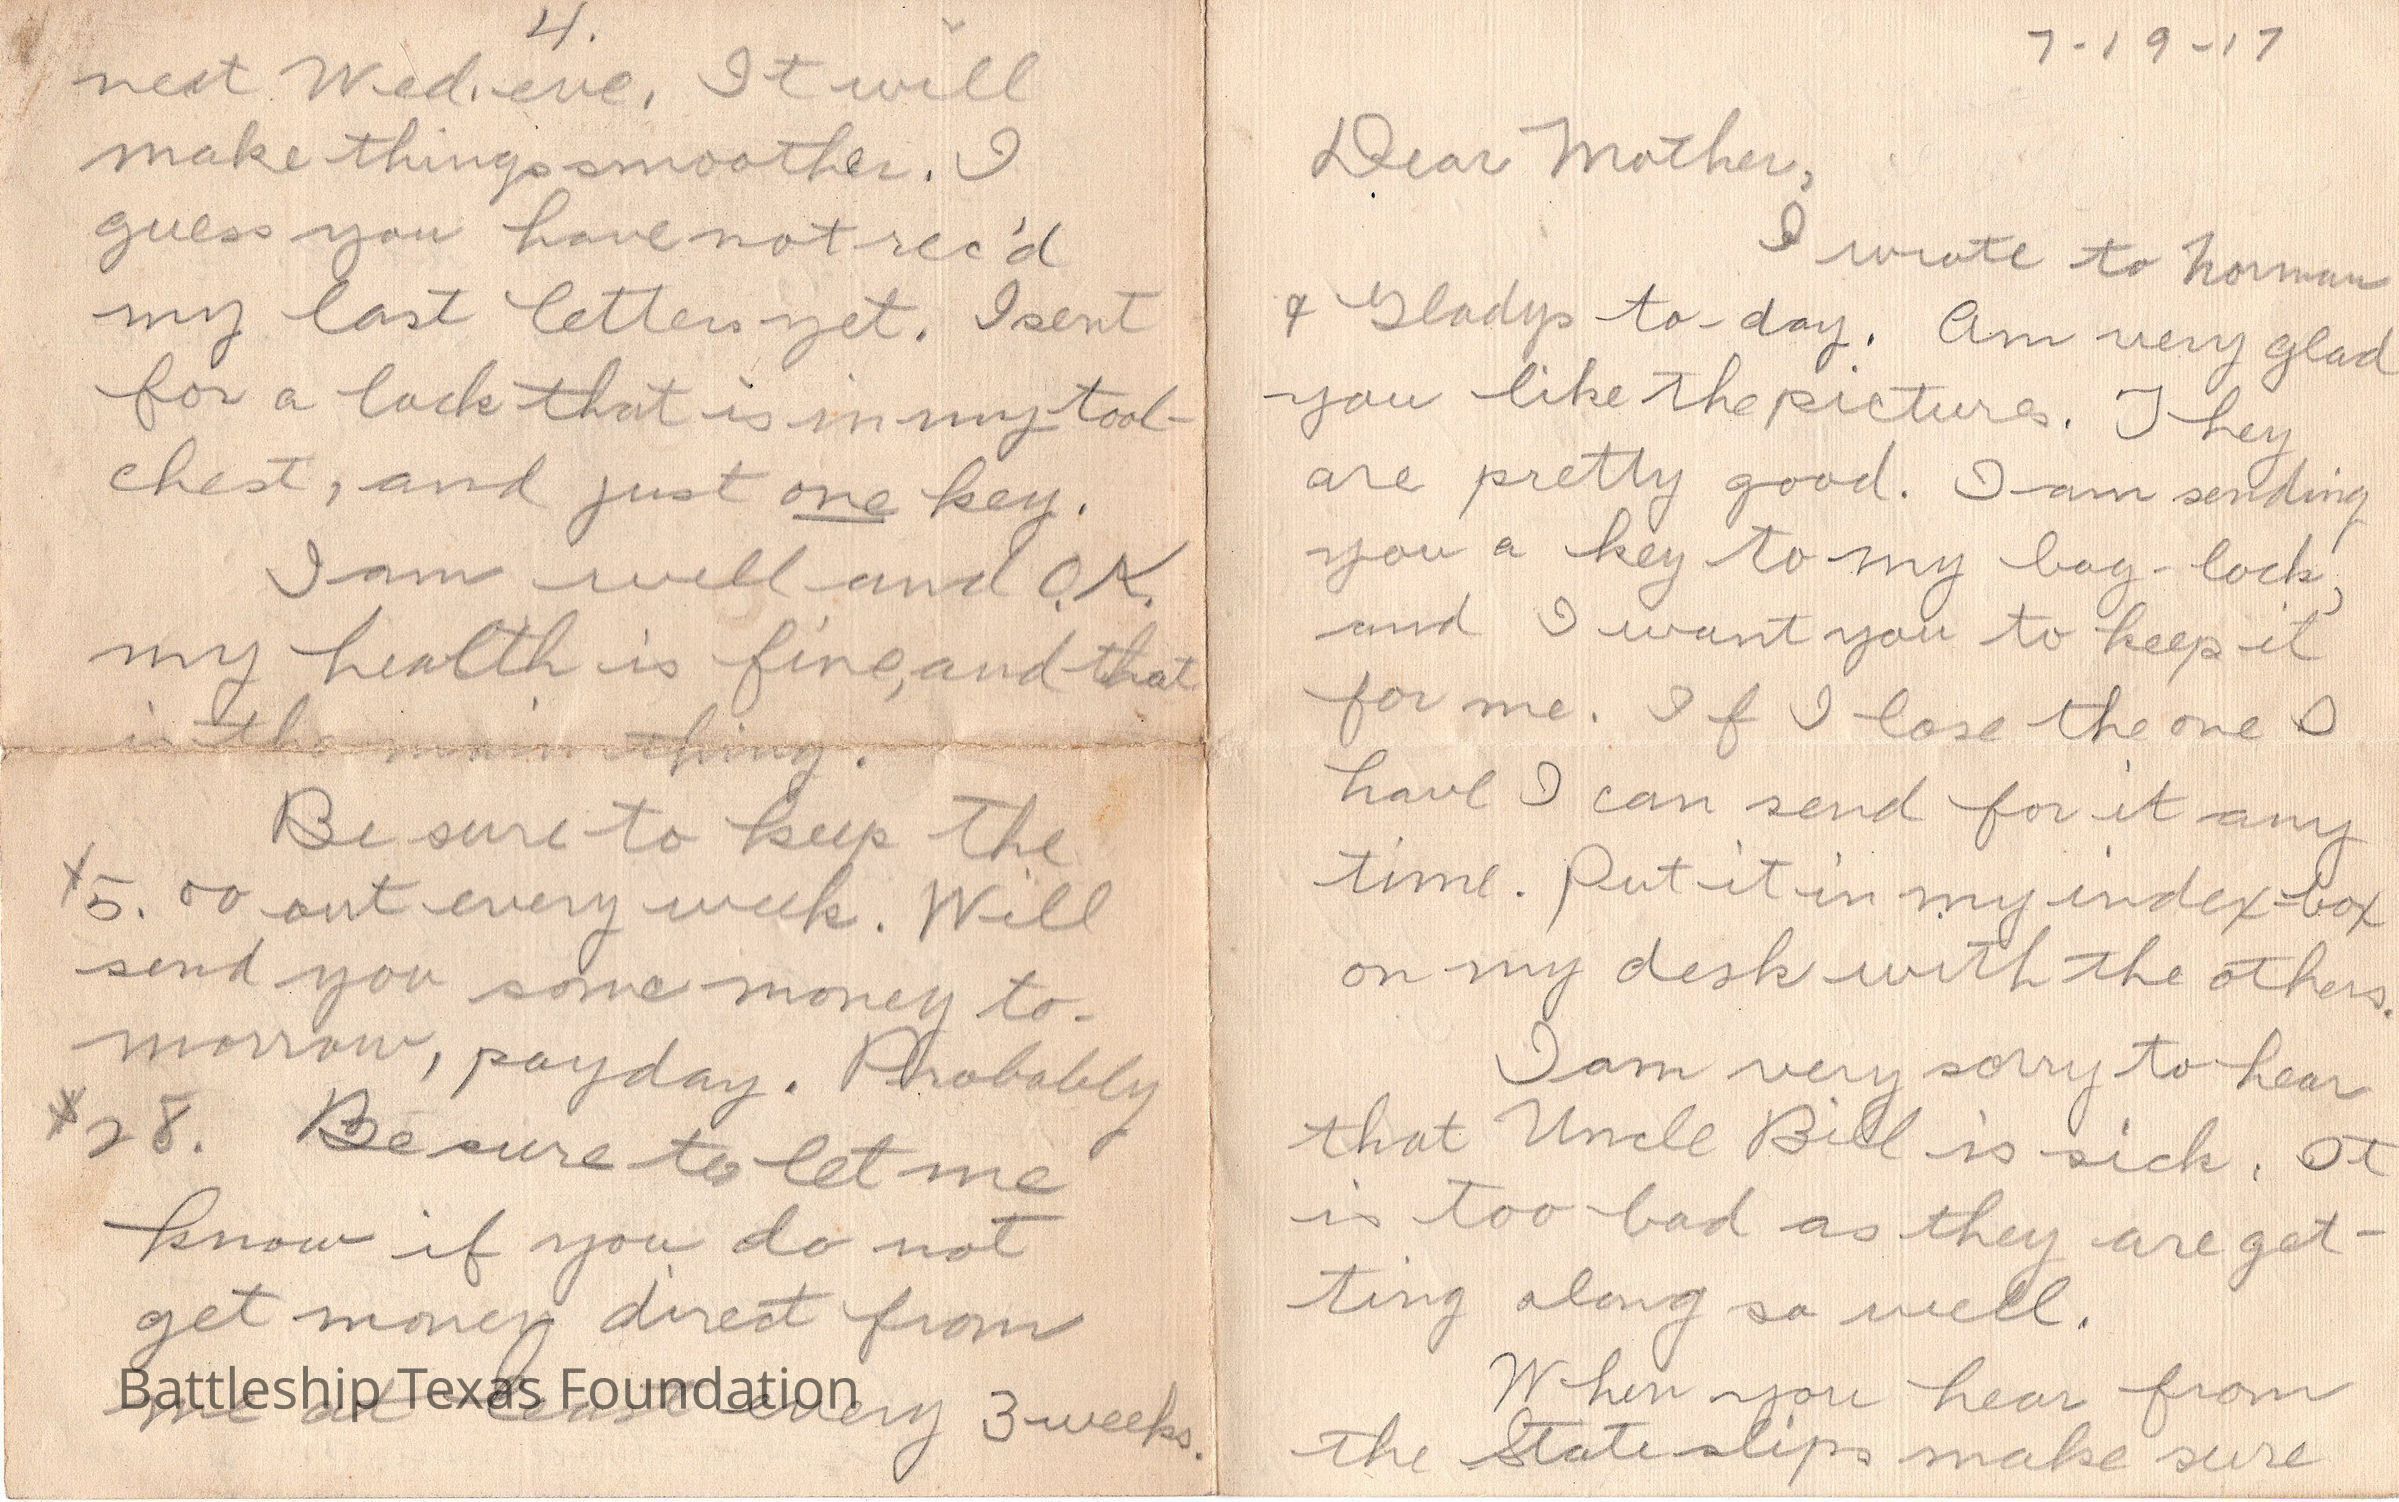 4.
next Wed. eve. It will
make things smoother. I
guess you have not rec'd
my last letters yet. I sent
for a lock that is in my tool-
chest, and just one key.
I am well and O.K.
my health is fine, and that
is the main thing.
Be sure to keep the
$5.00 out every week. Will
send you some money to-
morrow, payday. Probably
$28. Be sure to let me
know if you do not
get money direct from
me at least every 3 weeks.
Battleship Texas Foundation
7-19-17
Dear Mother,
I wrote to Norman
& Gladys to-day. Am very glad
you like the pictures. They
are pretty good. I am sending
you a key to my bag-lock,
and I want you to keep it
for me. If I lose the one I
have I can send for it any
time. Put it in my index-box
on my desk with the others.
I am very sorry to hear
that Uncle Bill is sick. It
is too bad as they are get-
ting along so well.
When you hear from
the State slips make sure